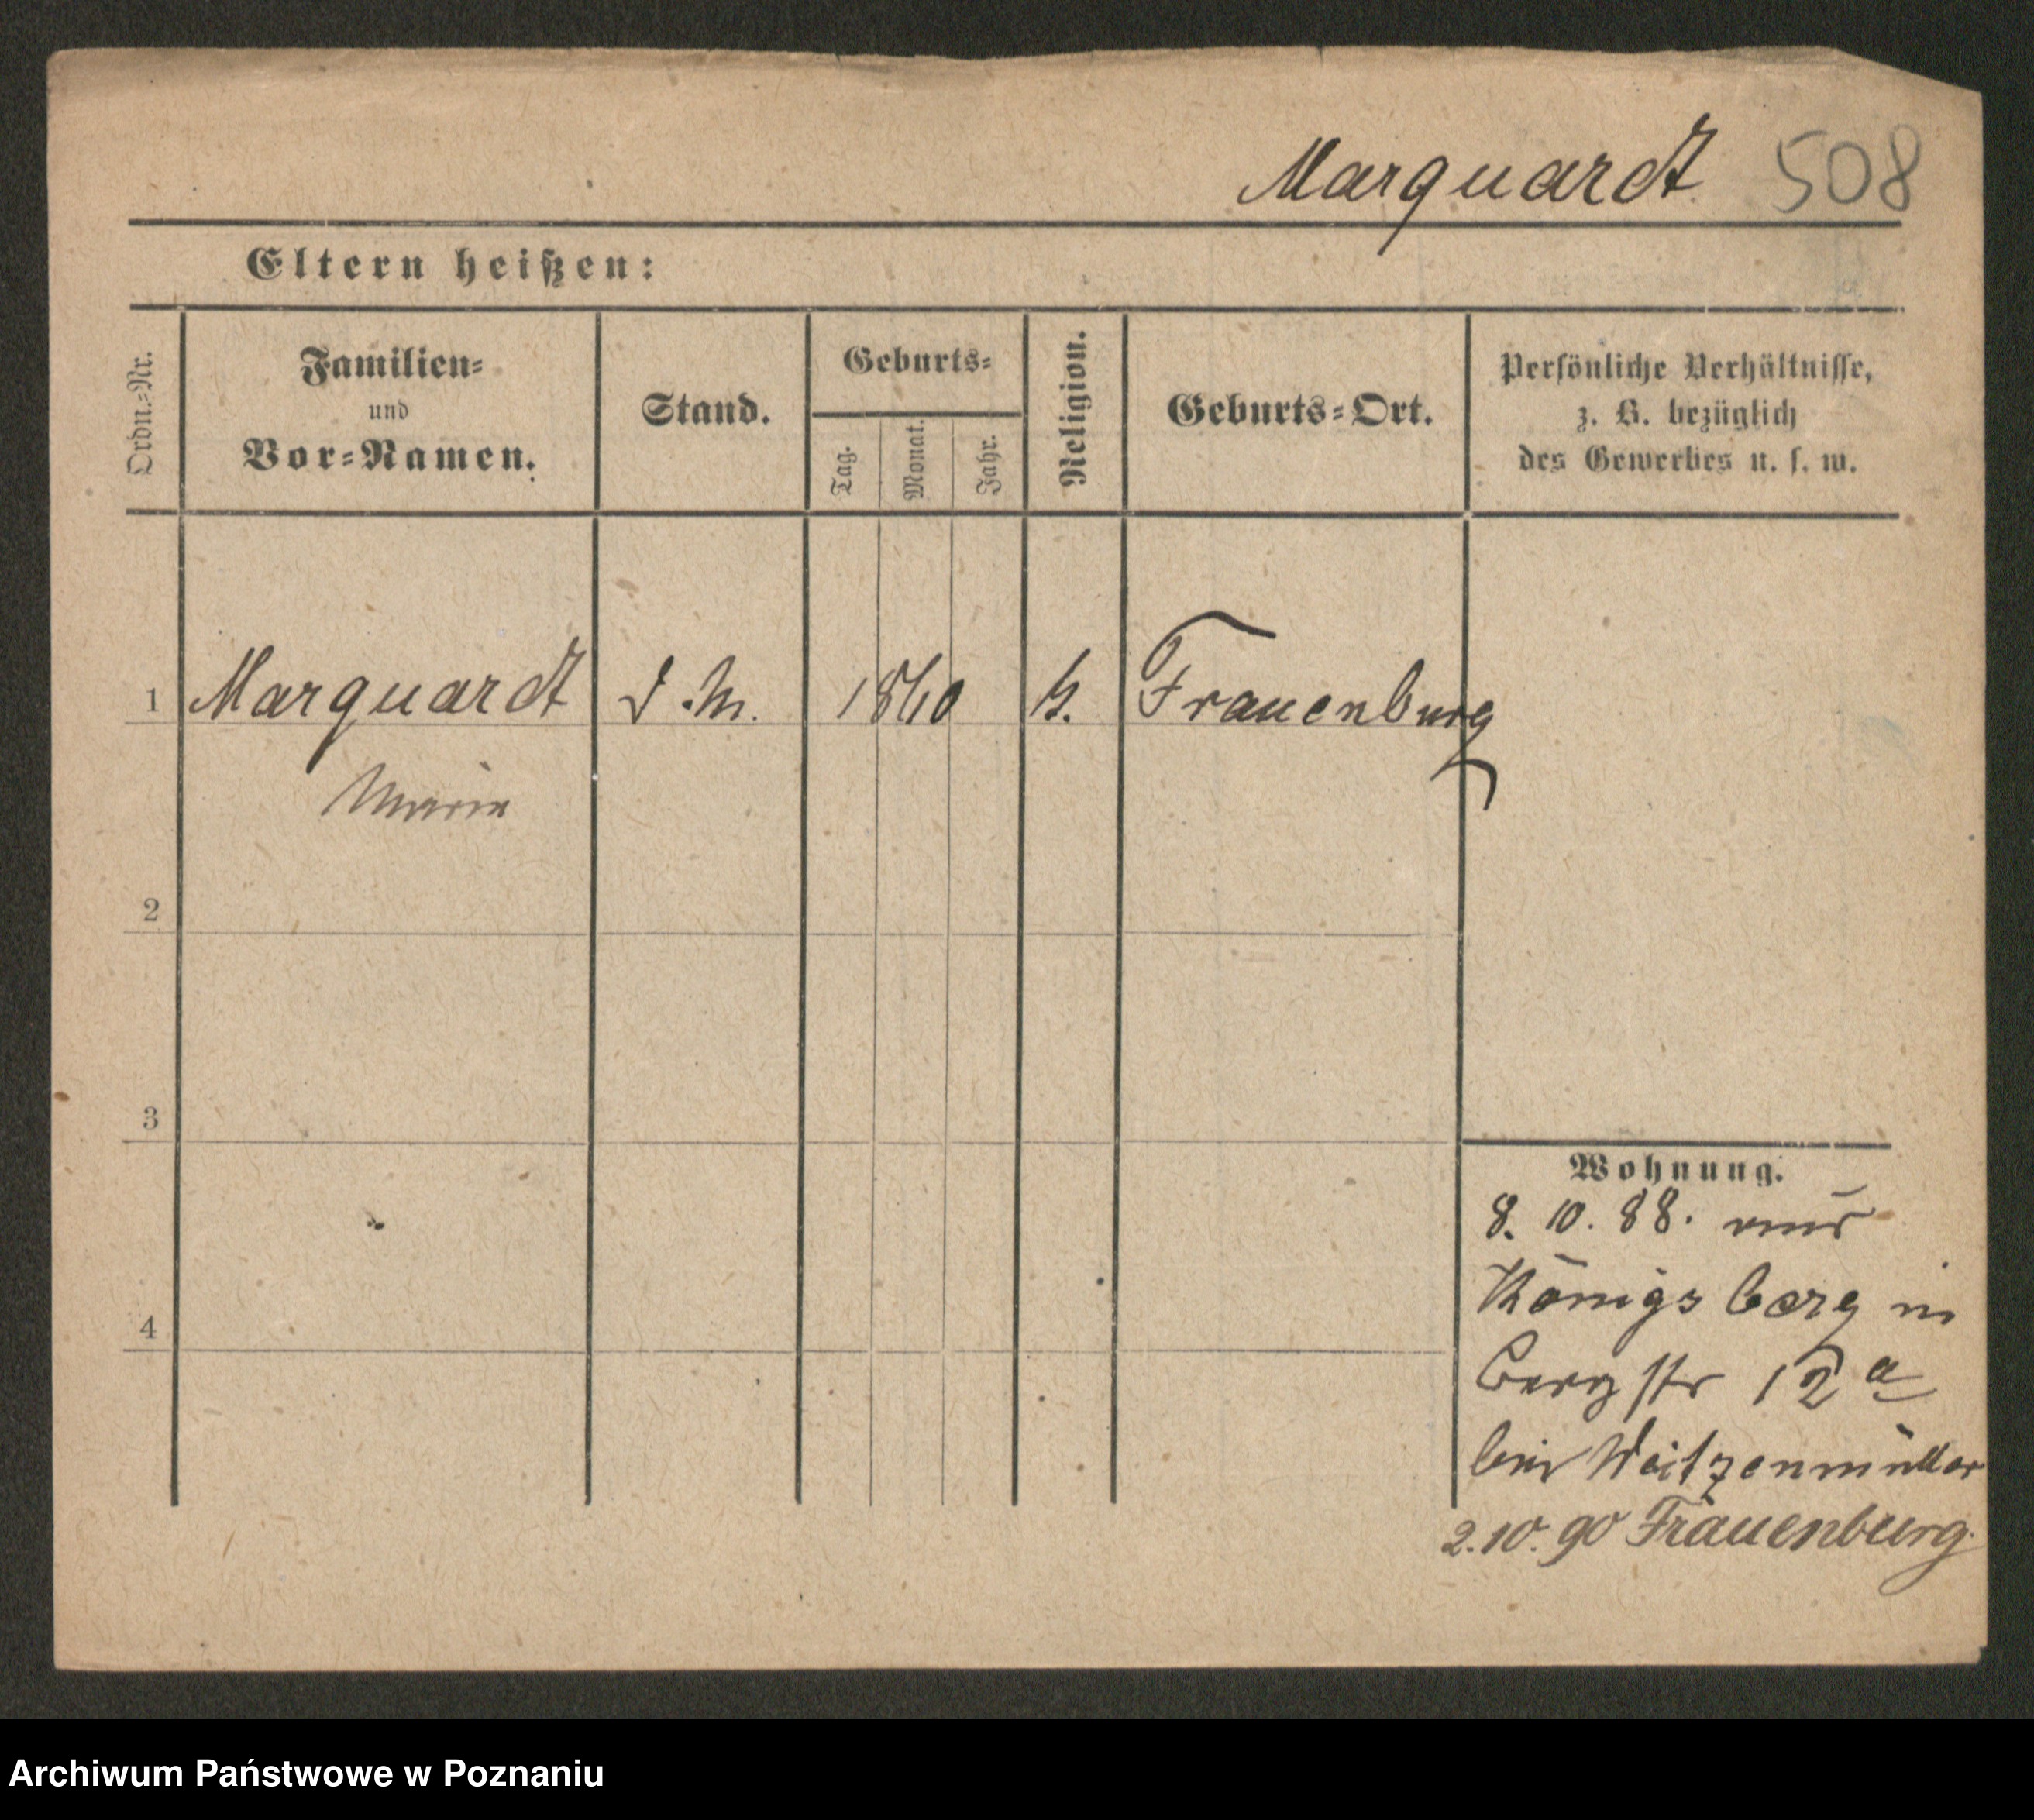 Marquardt 508
Eltern heißen:
Ordn.-Nr.
Familien-
und
Vor-Namen.
Stand.
Geburts-
Tag.
Monat.
Jahr.
Religion.
Geburts-Ort.
Persönliche Verhältnisse,
z. B. bezüglich
des Gewerbes u. s. w.
1 Marquardt D.M. 1860 k. Frauenburg
Maria
2
3
4
Wohnung.
8. 10. 88. aus
Königsberg in
Bergstr 12a
bei Weitzenmüller
2.10.90 Frauenburg.
Archiwum Państwowe w Poznaniu